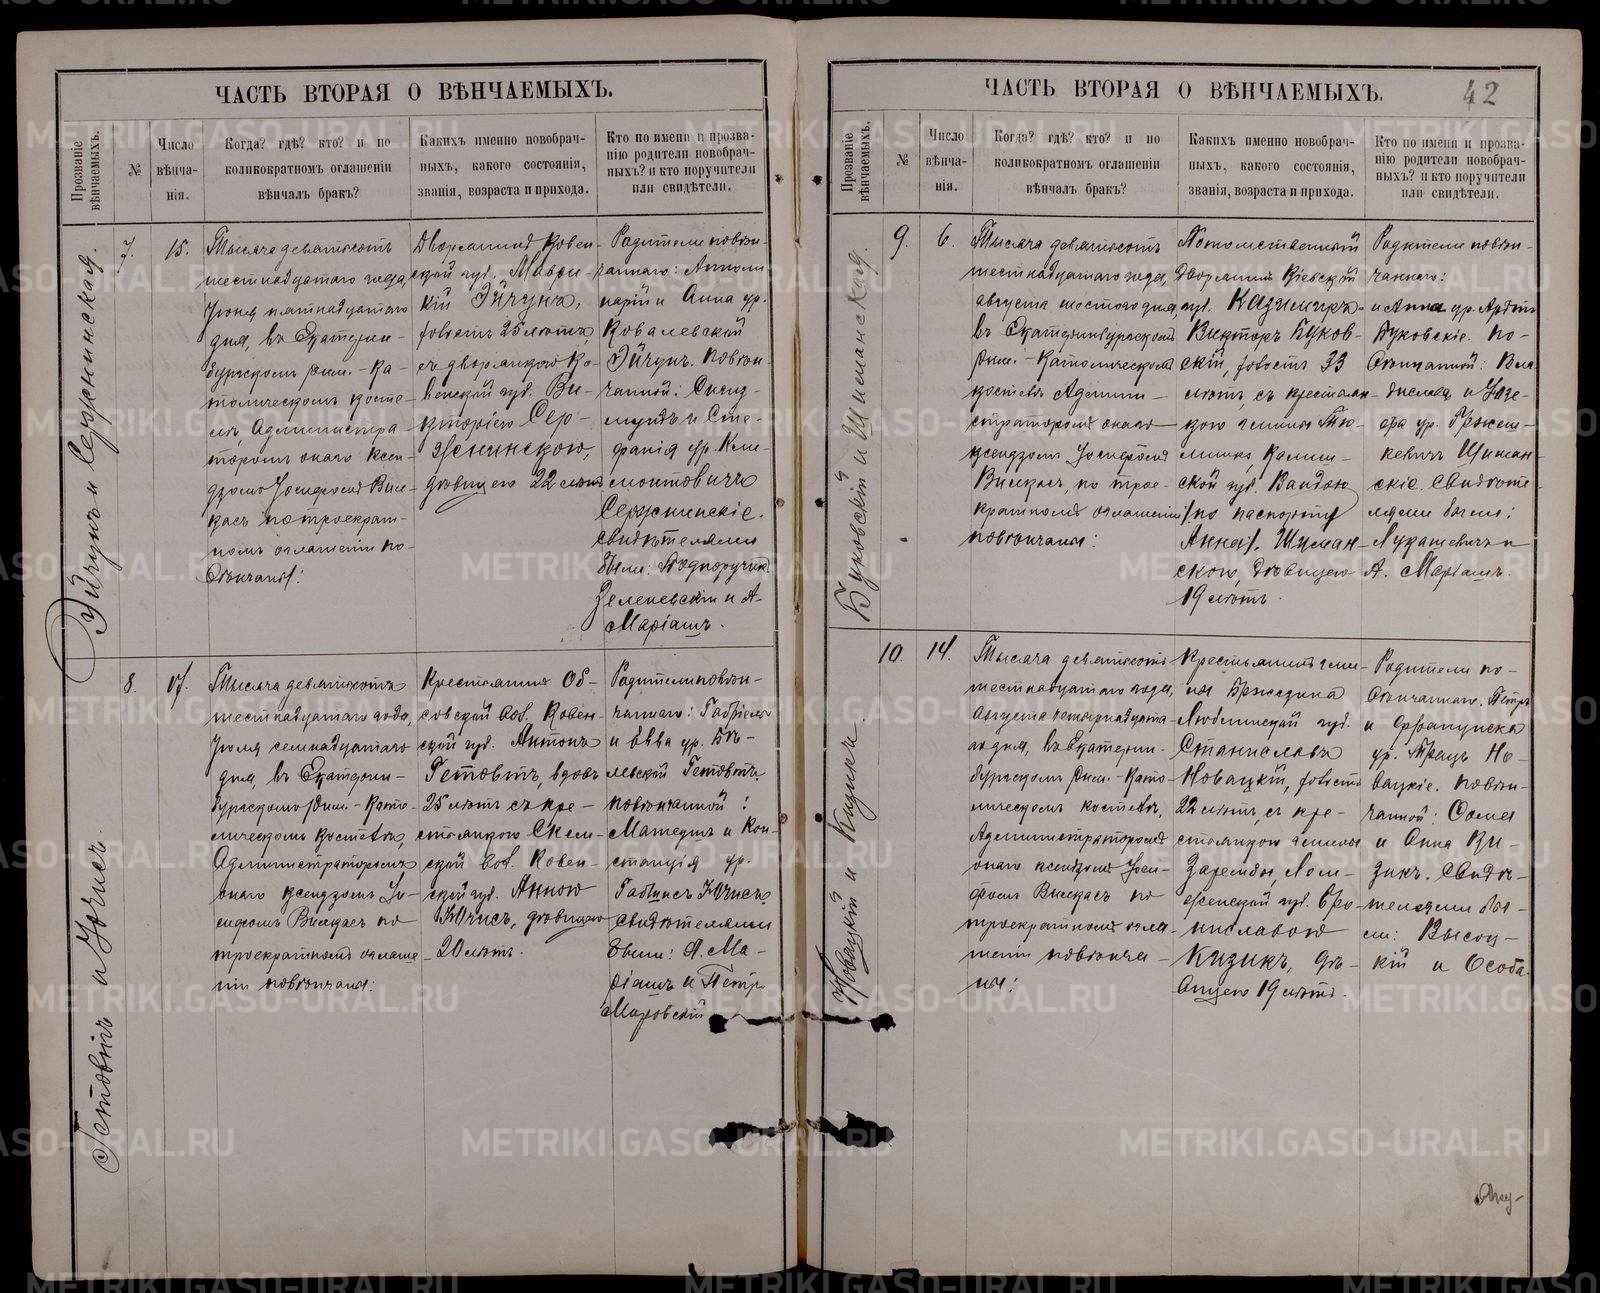 ЧАСТЬ ВТОРАЯ О ВѢНЧАЕМЫХЪ.
Прозваніе вѣнчаемыхъ.
№
Число вѣнча-
нія.
Когда? гдѣ? кто? и по
коликократномъ оглашеніи
вѣнчалъ бракъ?
Какихъ именно новобрач-
ныхъ, какого состоянія,
званія, возраста и прихода.
Кто по имени и прозва-
нію родители новобрач-
ныхъ? и кто поручители
или свидѣтели.
Эйчунъ и Сержпинская.
7.
15.
Тысяча девятьсотъ
шестнадцатаго года,
Іюня пятнадцатаго
дня, въ Екатерин-
бургскомъ Рим.-Ка-
толическомъ косте-
лѣ, Администра
торомъ онаго Ксен-
дзомъ Іосифомъ Вил-
касъ по троекрат-
номъ оглашеніи по-
вѣнчаны:
Дворянинъ Ковен-
ской губ.
кій Эйчунъ,
25 лѣтъ,
съ дворянкою Ко-
венской губ. Ви-
кторіею Сер-
жпинскою,
дѣвицею 22 лѣтъ
Родители повѣн-
чаннаго: Аполи
нарій и Анна ур.
Ковалевскій
Эйчунъ. Повѣн-
чанной: Сигиз-
мундъ и Сте-
фанія ур. Кли-
монтовичъ
Сержпинскіе.
Свидѣтелями
были: Подпоручик
Зелепевскій и А.
Маріашъ.
Гетовтъ и Ючисъ.
8.
17.
Тысяча девятьсотъ
шестнадцатаго года,
Іюля семнадцатаго
дня, въ Екатерин-
бургскомъ Рим.-Като-
лическомъ Костелѣ,
Администраторомъ
онаго Ксендзомъ Іо-
сифомъ Вилкасъ по
троекратномъ оглаше-
ніи повѣнчаны:
Крестьянинъ Об-
совской вол. Ковен-
ской губ. Антонъ
Гетовтъ, вдовъ
25 лѣтъ съ кре-
стьянкою Скем-
ской вол. Ковен-
ской губ. Анною
Ючисъ, дѣвицею
20 лѣтъ.
Родители повѣн-
чаннаго: Габріель
и Евва ур.
Гетовтъ.
повѣнчанной:
Матеушъ и Кон-
станція ур.
Габшисъ Ючисъ.
Свидѣтелями
были: А. Ма-
ріашъ и Петръ
Маровскій
ЧАСТЬ ВТОРАЯ О ВѢНЧАЕМЫХЪ.
42
Прозваніе вѣнчаемыхъ.
№
Число вѣнча-
нія.
Когда? гдѣ? кто? и по
коликократномъ оглашеніи
вѣнчалъ бракъ?
Какихъ именно новобрач-
ныхъ, какого состоянія,
званія, возраста и прихода.
Кто по имени и прозва-
нію родители новобрач-
ныхъ? и кто поручители
или свидѣтели.
Буковскій и Шиманская.
9.
6.
Тысяча девятьсотъ
шестнадцатаго года,
августа шестого дня,
въ Екатеринбургскомъ
Рим.-Католическомъ
костелѣ Админи-
страторомъ онаго
ксендзомъ Іосифомъ
Вилкасъ, по трое-
кратномъ оглашеніи
повѣнчаны:
Потомственный
Дворянинъ Кіевской
губ. Казиміръ-
Викторъ Буков-
скій, 33
лѣтъ, съ крестьян-
кою гмины
Калиш-
ской губ. Вандою
/по паспорту
Анна/. Шиман-
скою, дѣвицею
19 лѣтъ.
Родители повѣн-
чаннаго:
и Анна ур.
Буковскіе. По-
вѣнчанной: Вла
диславъ и Юзе-
фа ур.
Шиман-
скіе. Свидѣте-
лями были:
Лукашевичъ и
А. Маріашъ.
Новацкій и Кизикъ.
10.
14.
Тысяча девятьсотъ
шестнадцатаго года,
Августа четырнадцата-
го дня, въ Екатерин-
бургскомъ Рим.-Като-
лическомъ костелѣ,
Администраторомъ
онаго ксендзомъ Іоси-
фомъ Вилкасъ по
троекратномъ огла-
шеніи повѣнча-
ны:
Крестьянинъ гми-
ны
Люблинской губ.
Станиславъ
Новацкій,
22 лѣтъ, съ кре-
стьянкою гмины
Заремба, Лом-
женской губ. Бро-
ниславою
Кизикъ, дѣ-
вицею 19 лѣтъ.
Родители по-
вѣнчаннаго: Петръ
и Францишка
ур. Но-
вацкіе. Повѣн-
чанной: Осипъ
и Анна Ки-
зикъ. Свидѣ-
телями бы-
ли: Высоц-
кій и Особа.
METRIKI.GASO-URAL.RU